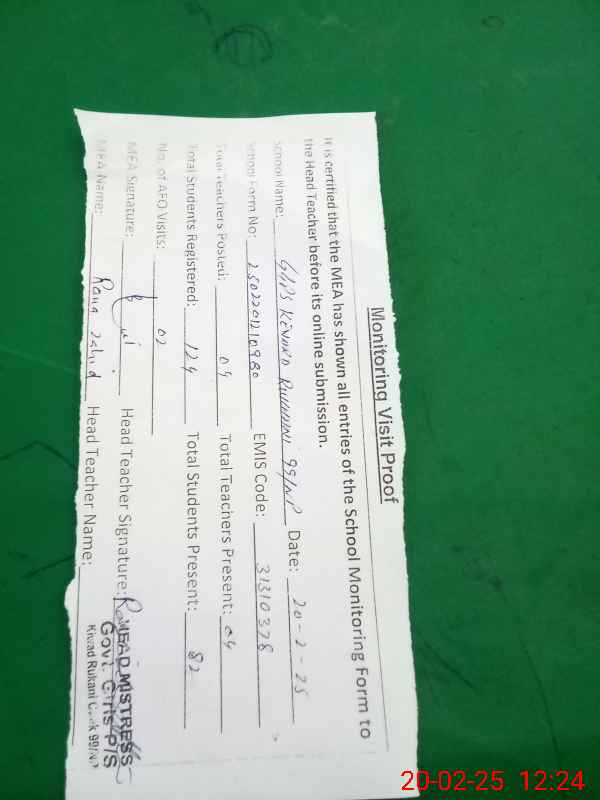 Monitoring Visit Proof
It is certified that the MEA has shown all entries of the School Monitoring Form to
the Head Teacher before its online submission.
School Name: GGPS 99/NP Date: 20-2-25
School Form No: 2502201210980 EMIS Code: 31310378
Total Teachers Posted: 04 Total Teachers Present: 04
Total Students Registered: 124 Total Students Present: 82
No. of AEO Visits: 02
MEA Signature: Head Teacher Signature:
MEA Name: Rana Zahid Head Teacher Name:
HEAD MISTRESS
Govt. Girls P/S
Kiwad Rukani Chak 99/NP
20-02-25 12:24